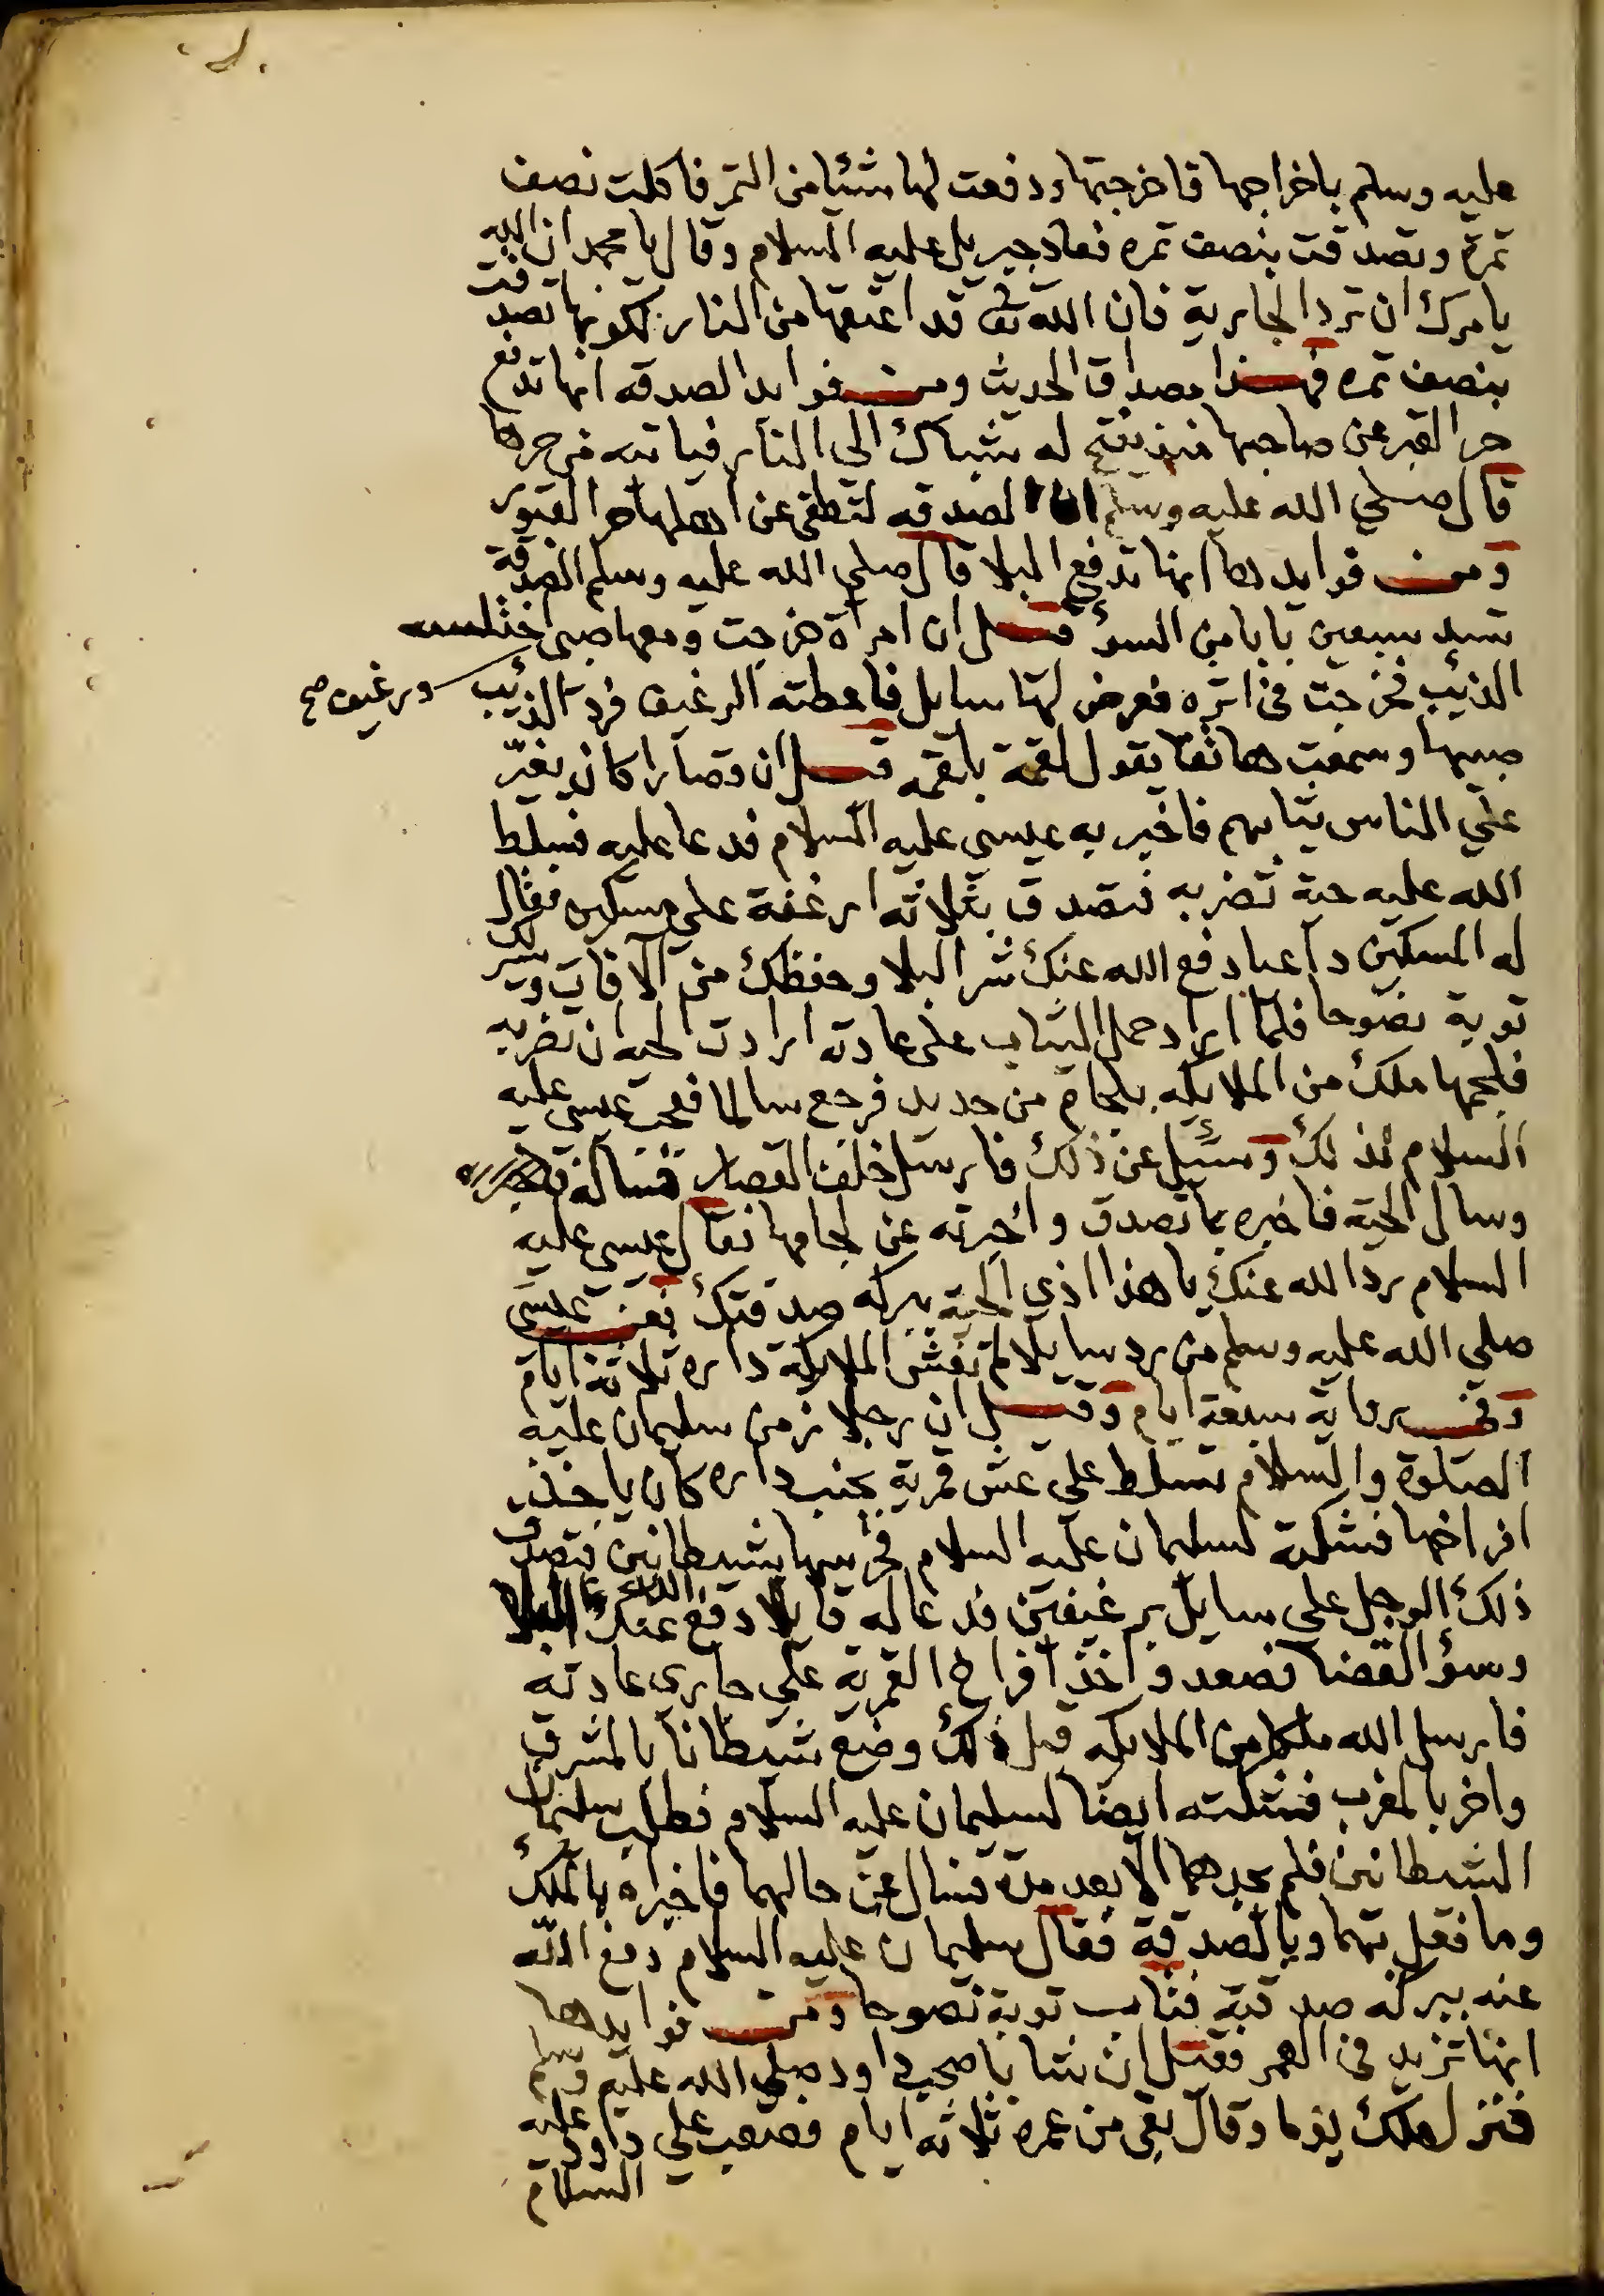 عليه وسلم باخراجها فاخرجتها ودفعت لها شئا من التمر فاكلت نصف
تمرة وتصدقت بنصف تمره فعاد جبريل عليه السلام وقال يا محمد ان الله
يامرك ان ترد الجارية فان الله تعا قد اعتقها من النار لكونها تصدقت
بنصف تمره فهذا مصداق الحديث ومن فوايد الصدقه انها تدفع
حر القبر عن صاحبها يفتح له شباك الى النار فياتيه من حرها
قال صلي الله عليه وسلم ان الصدقه لتطفى عن اهلها حر القبور
ومن فوايدها انها تدفع البلا قال صلى الله عليه وسلم الصدقة
تسد سبعين بابا من السوء قيل ان امراة خرجت ومعها صبى
ورغيف صح
الذئب فخرجت في اثره فعرض لها سايل فاعطته الرغيف فرد الذئب
صبيها وسمعت هاتفا يقول لقمة بلقمه قيل ان قصارا كان يغير
علي الناس ثيابهم فاخبر به عيسى عليه السلام فدعا عليه فسلط
الله عليه حية تضربه فتصدق بثلاثه ارغفة على مسكين فقال
له المسكين داعيا دفع الله عنك شر البلا وحفظك من الافات ويسر لك
توبة نصوحا فلما اراد حمل الثياب على عادته ارادت الحيه ان تضربه
فلجمها ملك من الملايكه بلجام من حديد فرجع سالما فعجب عيسى عليه
السلام لذلك وسئيل عن ذلك فارسل خلف القصار فساله
وسال الحية فاخبره بما تصدق واخبرته عن لجامها فقال عيسى عليه
السلام رد الله عنك يا هذا اذي الحية ببركه صدقتك فعن عيسى
صلي الله عليه وسلم من رد سايلا لم تغش الملايكة داره ثلاثة ايام
وفي رواية سبعة ايام وقيل ان رجلا زمن سليمان عليه
الصلوة والسلام تسلط علي عش قمرية بجنب داره كان ياخذ
افراخها فشكته لسليمان عليه السلام فحرسها بشيطانين فتصدق
ذلك الرجل على سايل برغيفين فدعا له قايلا دفع الله عنك البلا
وسؤ القضا فصعد واخذ افراخ القمرية علي جارى عادته
فارسل الله ملكا من الملايكه قبل ذلك وضع شيطانا بالمشرق
واخر بالمغرب فشكته ايضا لسليمان عليه السلام فطلب سليمان
الشيطانين فلم يجدهما الا بعد مدة فسال عن حالهما فاخبراه بالملك
وما فعل بهما وبالصدقة فقال سليمان عليه السلام دفع الله
عنه ببركه صدقته فتاب توبة نصوحا ومن فوايدها
انها تزيد في العمر فقيل ان شابا صحب داود صلى الله عليه وسلم
فنزل ملك يوما وقال بقى من عمره ثلاثه ايام فصعب علي داود عليه
السلام